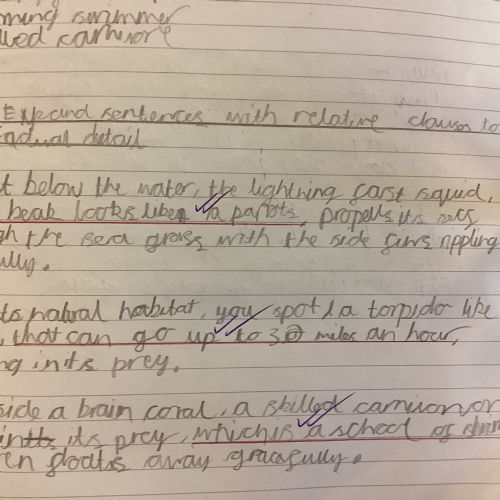 ming swimmer
lled carnivore
Expand sentences with relative clauses to
adual detail
t below the water, the lightning fast squid,
beak looks like a parrots, propells its
gh the sea grass with the side fins rippling
ully.
ts natural habitat, you spot a torpido like
, that can go up to 30 miles an hour,
ng in its prey.
side a brain coral, a skilled carnivor
its prey, which is a school of
en floats away gracefully.